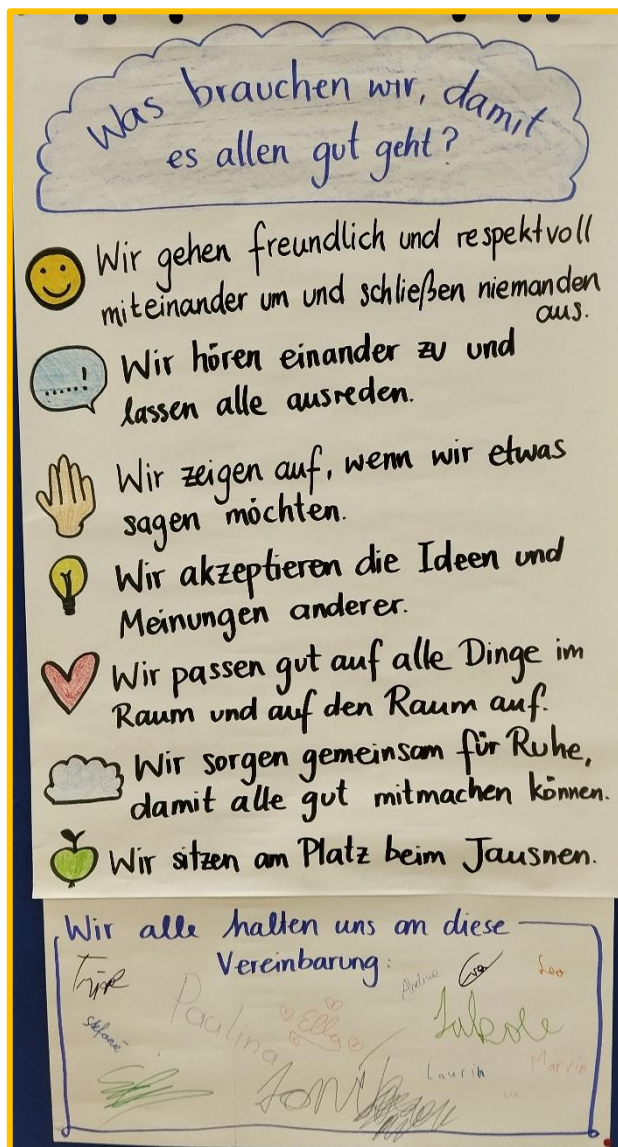 Was brauchen wir, damit
es allen gut geht?
Wir gehen freundlich und respektvoll
miteinander um und schließen niemanden
aus.
......!
Wir hören einander zu und
lassen alle ausreden.
Wir zeigen auf, wenn wir etwas
sagen möchten.
Wir akzeptieren die Ideen und
Meinungen anderer.
Wir passen gut auf alle Dinge im
Raum und auf den Raum auf.
Wir sorgen gemeinsam für Ruhe,
damit alle gut mitmachen können.
Wir sitzen am Platz beim Jausnen.
Wir alle halten uns an diese
Vereinbarung:
Eva
Leo
Paulina
Ella
Stefanie
Laurin
Marvin